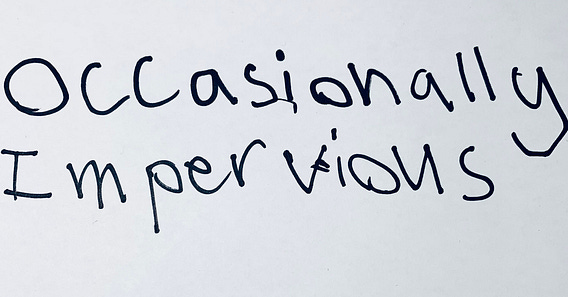 Occasionally
Impervious